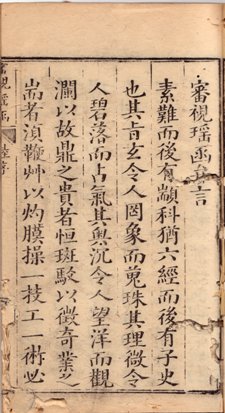 審視瑶函弁言
素難而後有顓科猶六經而後有子史
也其旨玄令人罔象而蒐珠其理微令
人碧落而占氣其奥沉令人望洋而觀
瀾以故鼎之貴者恒斑駁以徵奇業之
耑者須鞭艸以灼膜操一技工一術必